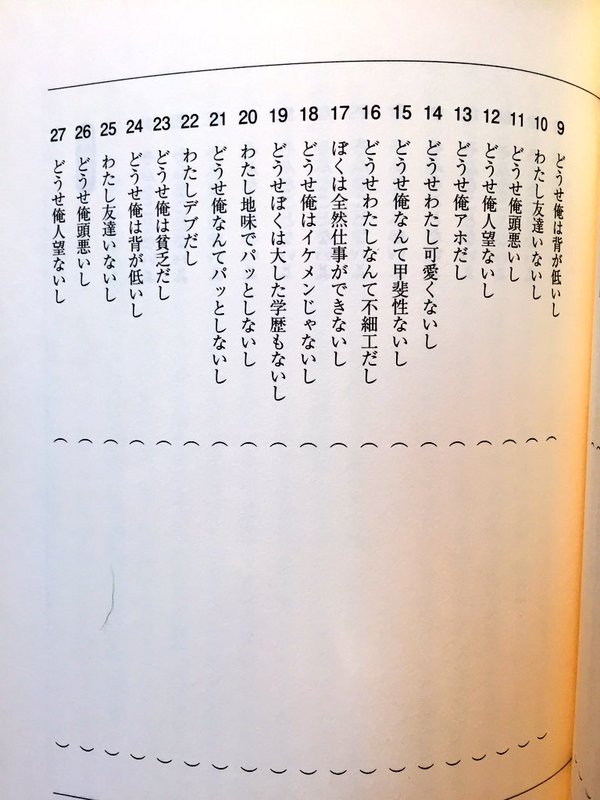 9 どうせ俺は背が低いし ( )
10 わたし友達いないし ( )
11 どうせ俺頭悪いし ( )
12 どうせ俺人望ないし ( )
13 どうせ俺アホだし ( )
14 どうせわたし可愛くないし ( )
15 どうせ俺なんて甲斐性ないし ( )
16 どうせわたしなんて不細工だし ( )
17 ぼくは全然仕事ができないし ( )
18 どうせ俺はイケメンじゃないし ( )
19 どうせぼくは大した学歴もないし ( )
20 わたし地味でパッとしないし ( )
21 どうせ俺なんてパッとしないし ( )
22 わたしデブだし ( )
23 どうせ俺は貧乏だし ( )
24 どうせ俺は背が低いし ( )
25 わたし友達いないし ( )
26 どうせ俺頭悪いし ( )
27 どうせ俺人望ないし ( )